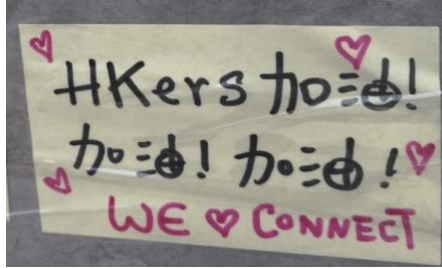 HKers 加油!
加油! 加油!
WE ♡ CONNECT